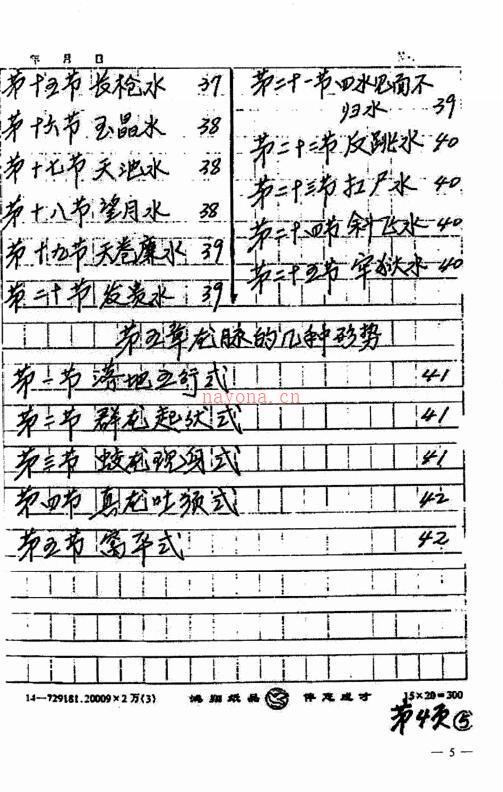 年 月 日
第十五节 长枪水 37
第十六节 玉晶水 38
第十七节 天池水 38
第十八节 望月水 38
第十九节 天卷廉水 39
第二十节 发贵水 39
第二十一节 四水见面不
归水 39
第二十二节 反跳水 40
第二十三节 扛尸水 40
第二十四节 斜飞水 40
第二十五节 牢狱水 40
第五章 龙脉的几种形势
第一节 落地五行式 41
第二节 群龙起伏式 41
第三节 蛟龙现身式 41
第四节 真龙吐须式 42
第五节 窝平式 42
nayona.cn
14—729181.20009×2万(3) 鸿翔纸品 伴您成才 15×20=300
第4页⑤
— 5 —